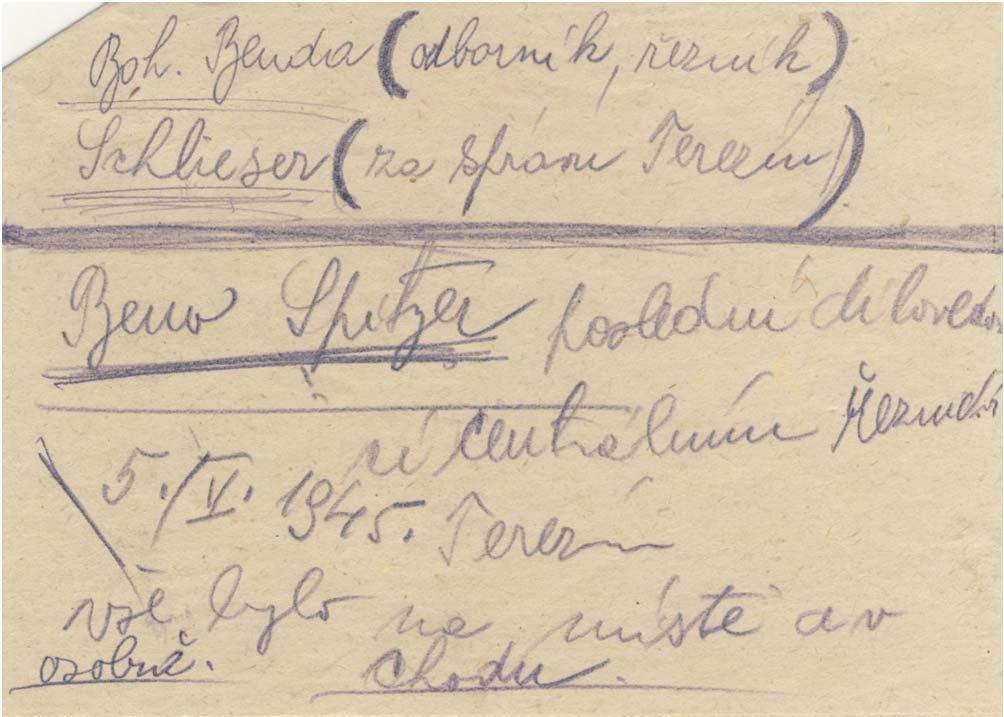 Boh. Benda (odborník, řezník)
Schlieser (za správu Terezín)
Beno Spitzer poslední dílovedou
cí centrálním řeznictví
5./V. 1945. Terezín
vše bylo na místě a v
osobně. chodu.